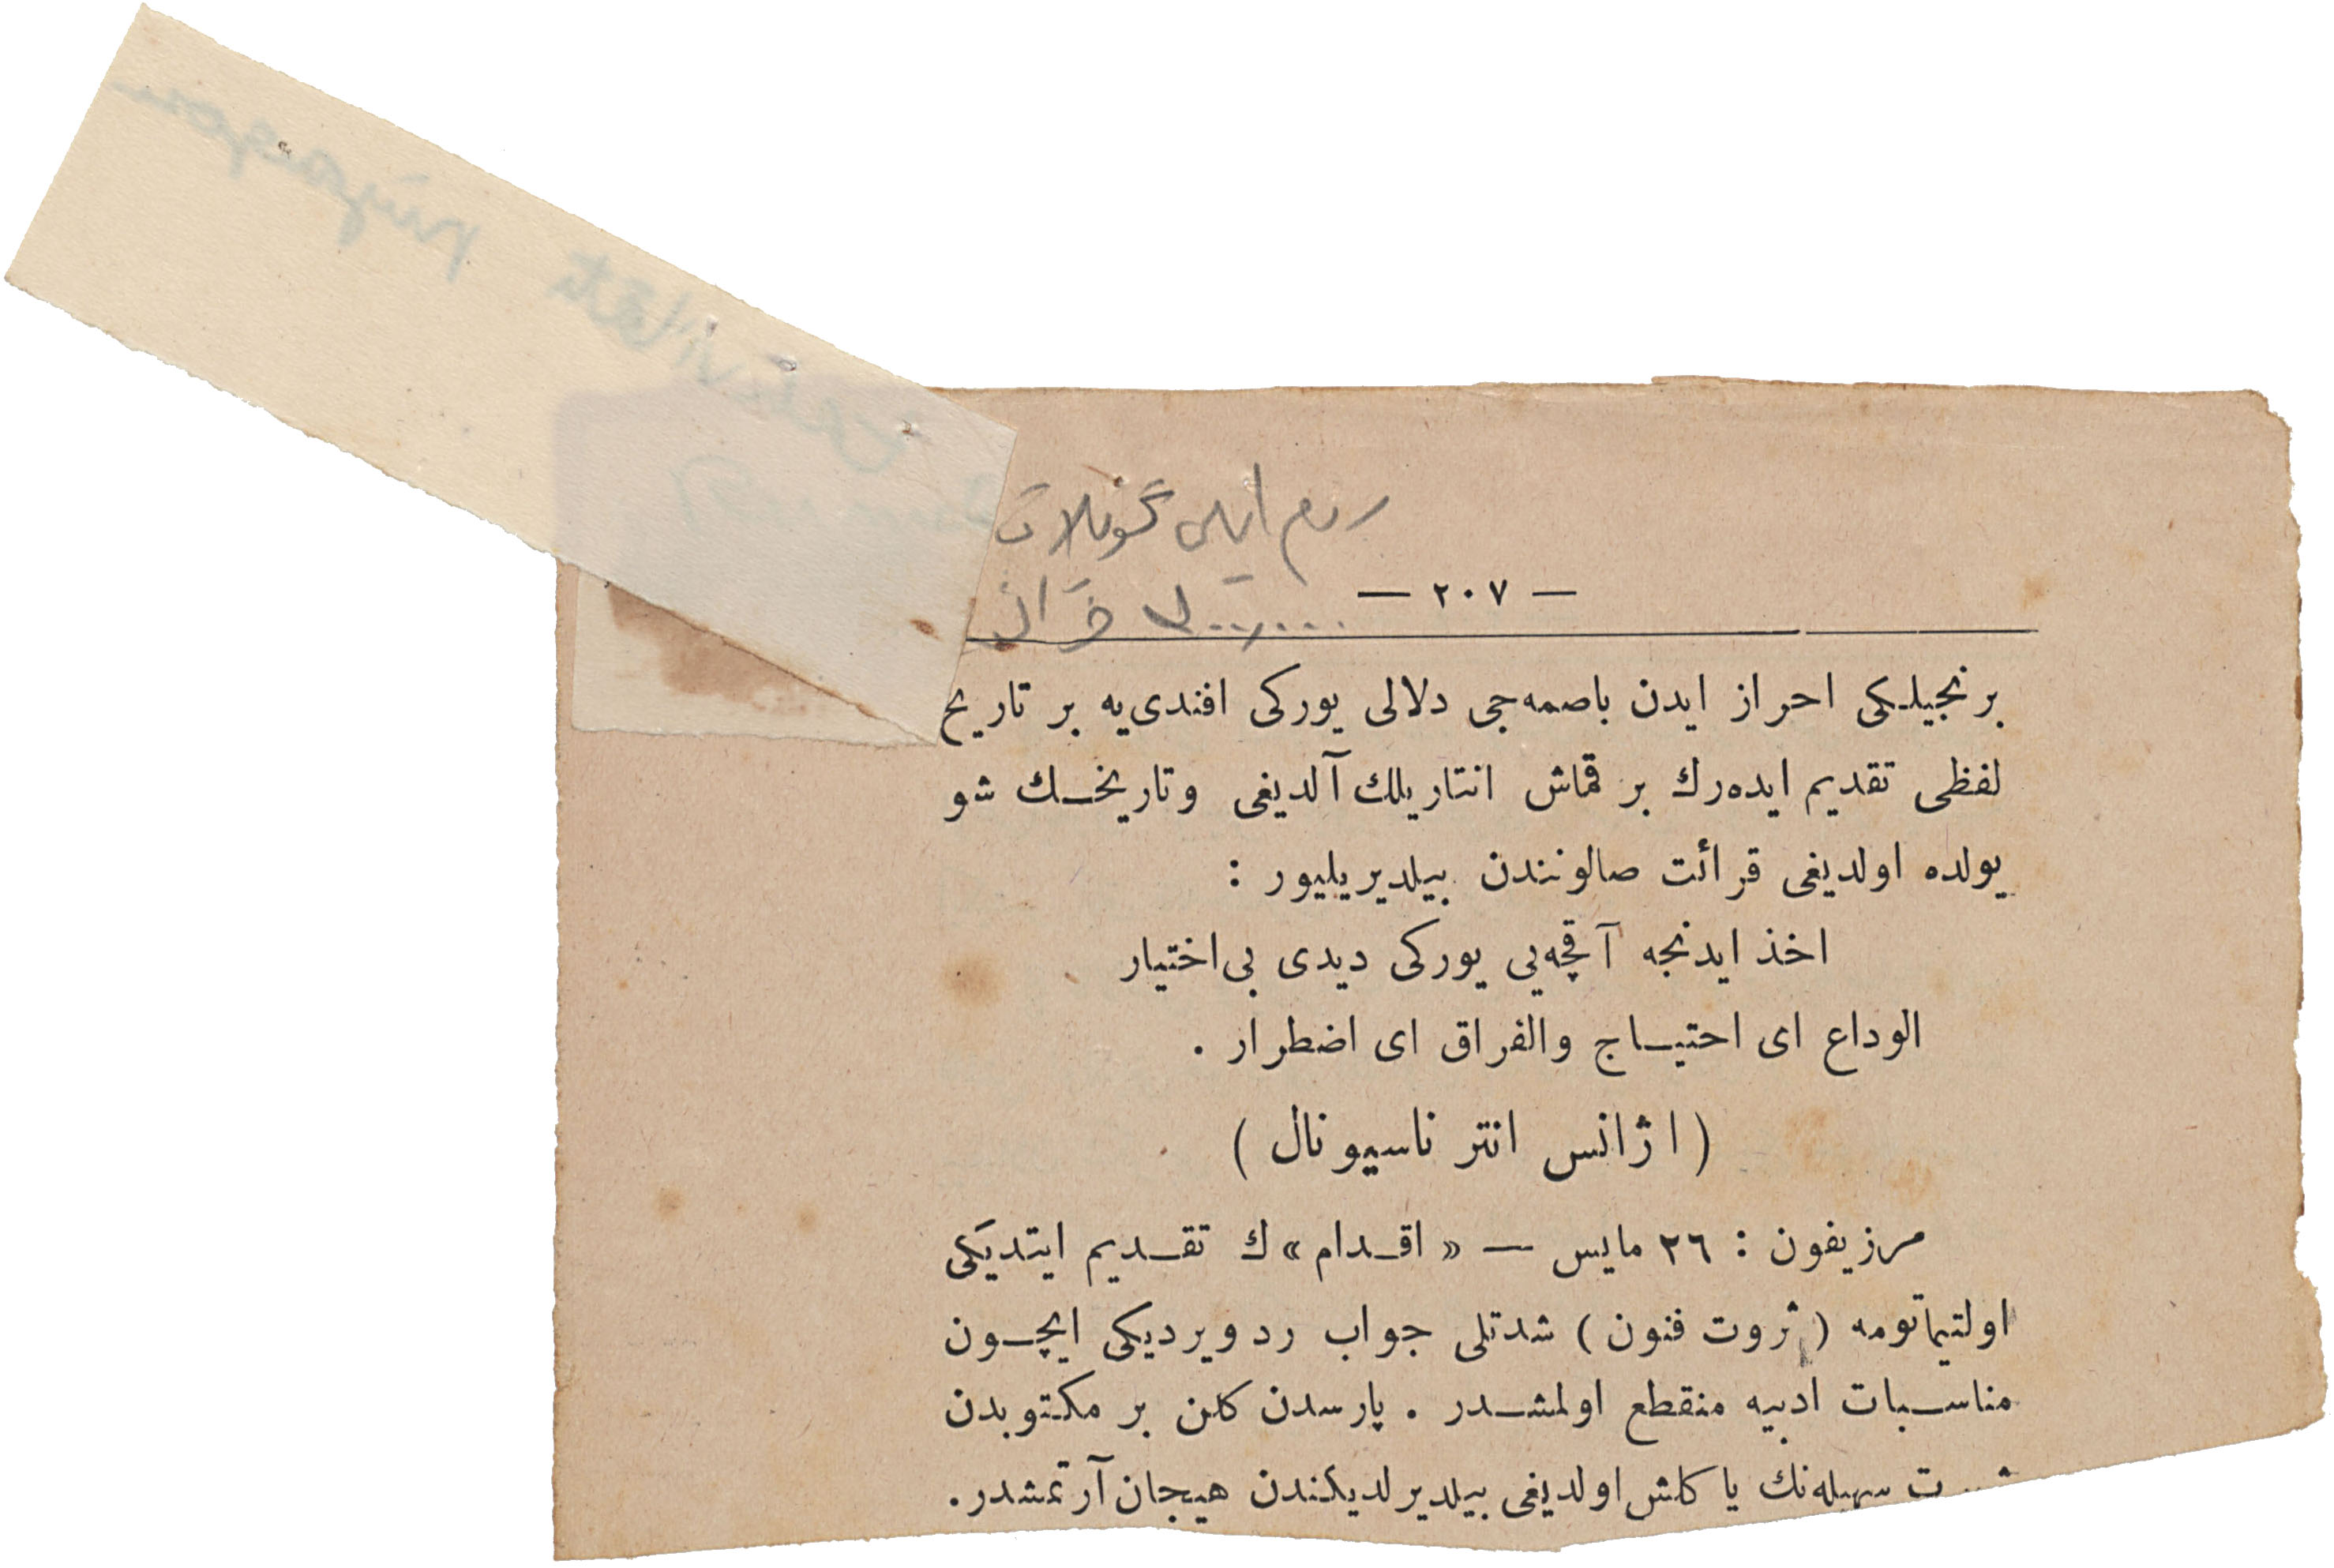 — ٢٠٧ —
برنجیلکی احراز ایدن باصمه‌جی دلالی یورکی افندی‌یه بر تاریخ
لفظی تقدیم ایده‌رك بر قماش انتاریلك آلدیغی وتاریخك شو
یولده اولدیغی قرائت صالونندن بیلدیریلیور :
اخذ ایدنجه آقچه‌یی یورکی دیدی بی‌اختیار
الوداع ای احتیاج والفراق ای اضطرار .
( اژانس انترناسیونال )
مرزیفون : ٢٦ مایس — « اقدام » ك تقدیم ایتدیکی
اولتیماتومه ( ثروت فنون ) شدتلی جواب رد ویردیکی ایچون
مناسبات ادبیه منقطع اولمشدر . پارسدن کلن بر مکتوبدن
یاکلش اولدیغی بیلدیرلدیکندن هیجان آرتمشدر .